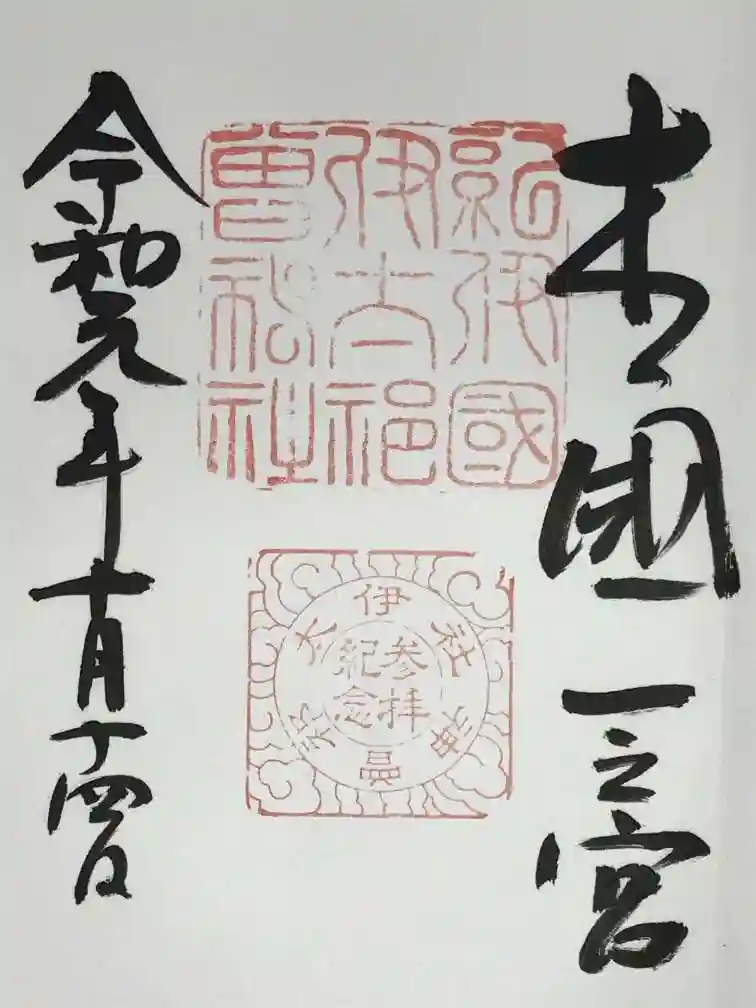 木国一之宮
紀伊國
伊太祁
曽神社
伊太祁曽神社
参拝
紀念
令和元年十月十四日